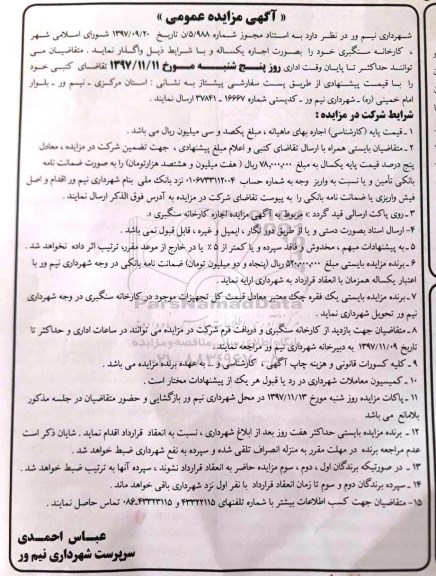 « آگهی مزایده عمومی »
شهرداری نیم ور در نظر دارد به استناد مجوز شماره ۵/۹۸۸/ن تاریخ ۱۳۹۷/۰۹/۲۰ شورای اسلامی شهر
، کارخانه سنگبری خود را بصورت اجاره یکساله و با شرایط ذیل واگذار نماید . متقاضیان می
توانند حداکثر تا پایان وقت اداری روز پنج شنبه مورخ ۱۳۹۷/۱۱/۱۱ تقاضای کتبی خود
را با قیمت پیشنهادی از طریق پست سفارشی پیشتاز به نشانی : استان مرکزی - نیم ور - بلوار
امام خمینی (ره) - شهرداری نیم ور - کدپستی شماره ۱۶۶۶۷ - ۳۷۸۴۱ ارسال نمایند .
شرایط شرکت در مزایده :
۱ - قیمت پایه (کارشناسی) اجاره بهای ماهیانه ، مبلغ یکصد و سی میلیون ریال می باشد .
۲ - متقاضیان بایستی همراه با ارسال تقاضای کتبی و اعلام مبلغ پیشنهادی ، جهت تضمین شرکت در مزایده ، معادل
پنج درصد قیمت پایه یکسال به مبلغ ۷۸,۰۰۰,۰۰۰ ریال ( هفت میلیون و هشتصد هزارتومان) را به صورت ضمانت نامه
بانکی تأمین و یا نسبت به واریز وجه به شماره حساب ۰۱۰۶۷۳۳۱۱۲۰۰۴ نزد بانک ملی بنام شهرداری نیم ور اقدام و اصل
فیش واریزی یا ضمانت نامه بانکی را به پیوست تقاضای شرکت در مزایده به آدرس فوق الذکر ارسال نمایند .
۳ - روی پاکت ارسالی قید گردد « مربوط به آگهی مزایده اجاره کارخانه سنگبری ».
۴ - ارسال اسناد بصورت دستی و یا از طریق دور نگار ، ایمیل و غیره ، قابل قبول نمی باشد .
۵ - به پیشنهادات مبهم ، مخدوش و فاقد سپرده و یا کمتر از ۵٪ یا در خارج از موعد مقرر، ترتیب اثر داده نخواهد شد .
۶ - برنده مزایده بایستی مبلغ ۵۲۰,۰۰۰,۰۰۰ ریال (پنجاه و دو میلیون تومان) ضمانت نامه بانکی در وجه شهرداری نیم ور با
اعتبار یکساله همزمان با انعقاد قرارداد به شهرداری ارایه نماید .
۷ - برنده مزایده بایستی یک فقره چک معتبر معادل قیمت کل تجهیزات موجود در کارخانه سنگبری در وجه شهرداری
نیم ور تحویل شهرداری نماید .
۸ - متقاضیان جهت بازدید از کارخانه سنگبری و دریافت فرم شرکت در مزایده می توانند در ساعات اداری و حداکثر تا
تاریخ ۱۳۹۷/۱۱/۰۹ به دبیرخانه شهرداری نیم ور مراجعه نمایند .
۹ - کلیه کسورات قانونی و هزینه چاپ آگهی ، کارشناسی و .. به عهده برنده مزایده می باشد .
۱۰ - کمیسیون معاملاتی شهرداری در رد یا قبول هر یک از پیشنهادات مختار است .
۱۱ - پاکات مزایده روز شنبه مورخ ۱۳۹۷/۱۱/۱۳ در محل شهرداری نیم ور بازگشایی و حضور متقاضیان در جلسه مذکور
بلامانع می باشد
۱۲ - برنده مزایده بایستی حداکثر هفت روز بعد از ابلاغ شهرداری ، نسبت به انعقاد قرارداد اقدام نماید . شایان ذکر است
عدم مراجعه برنده در مهلت مقرر به منزله انصراف تلقی شده و سپرده به نفع شهرداری ضبط خواهد شد .
۱۳ - در صورتیکه برندگان اول ، دوم ، سوم مزایده حاضر به انعقاد قرارداد نشوند ، سپرده آنها به ترتیب ضبط خواهد شد .
۱۴ - سپرده برندگان دوم و سوم تا زمان انعقاد قرارداد با نفر اول نزد شهرداری باقی خواهد ماند .
۱۵- متقاضیان جهت کسب اطلاعات بیشتر با شماره تلفنهای ۴۳۳۲۲۱۱۵ و ۴۳۳۲۳۱۱۵-۰۸۶ تماس حاصل نمایند .
عباس احمدی
سرپرست شهرداری نیم ور
ParsNamadData
پایگاه اطلاع رسانی مناقصه و مزایده